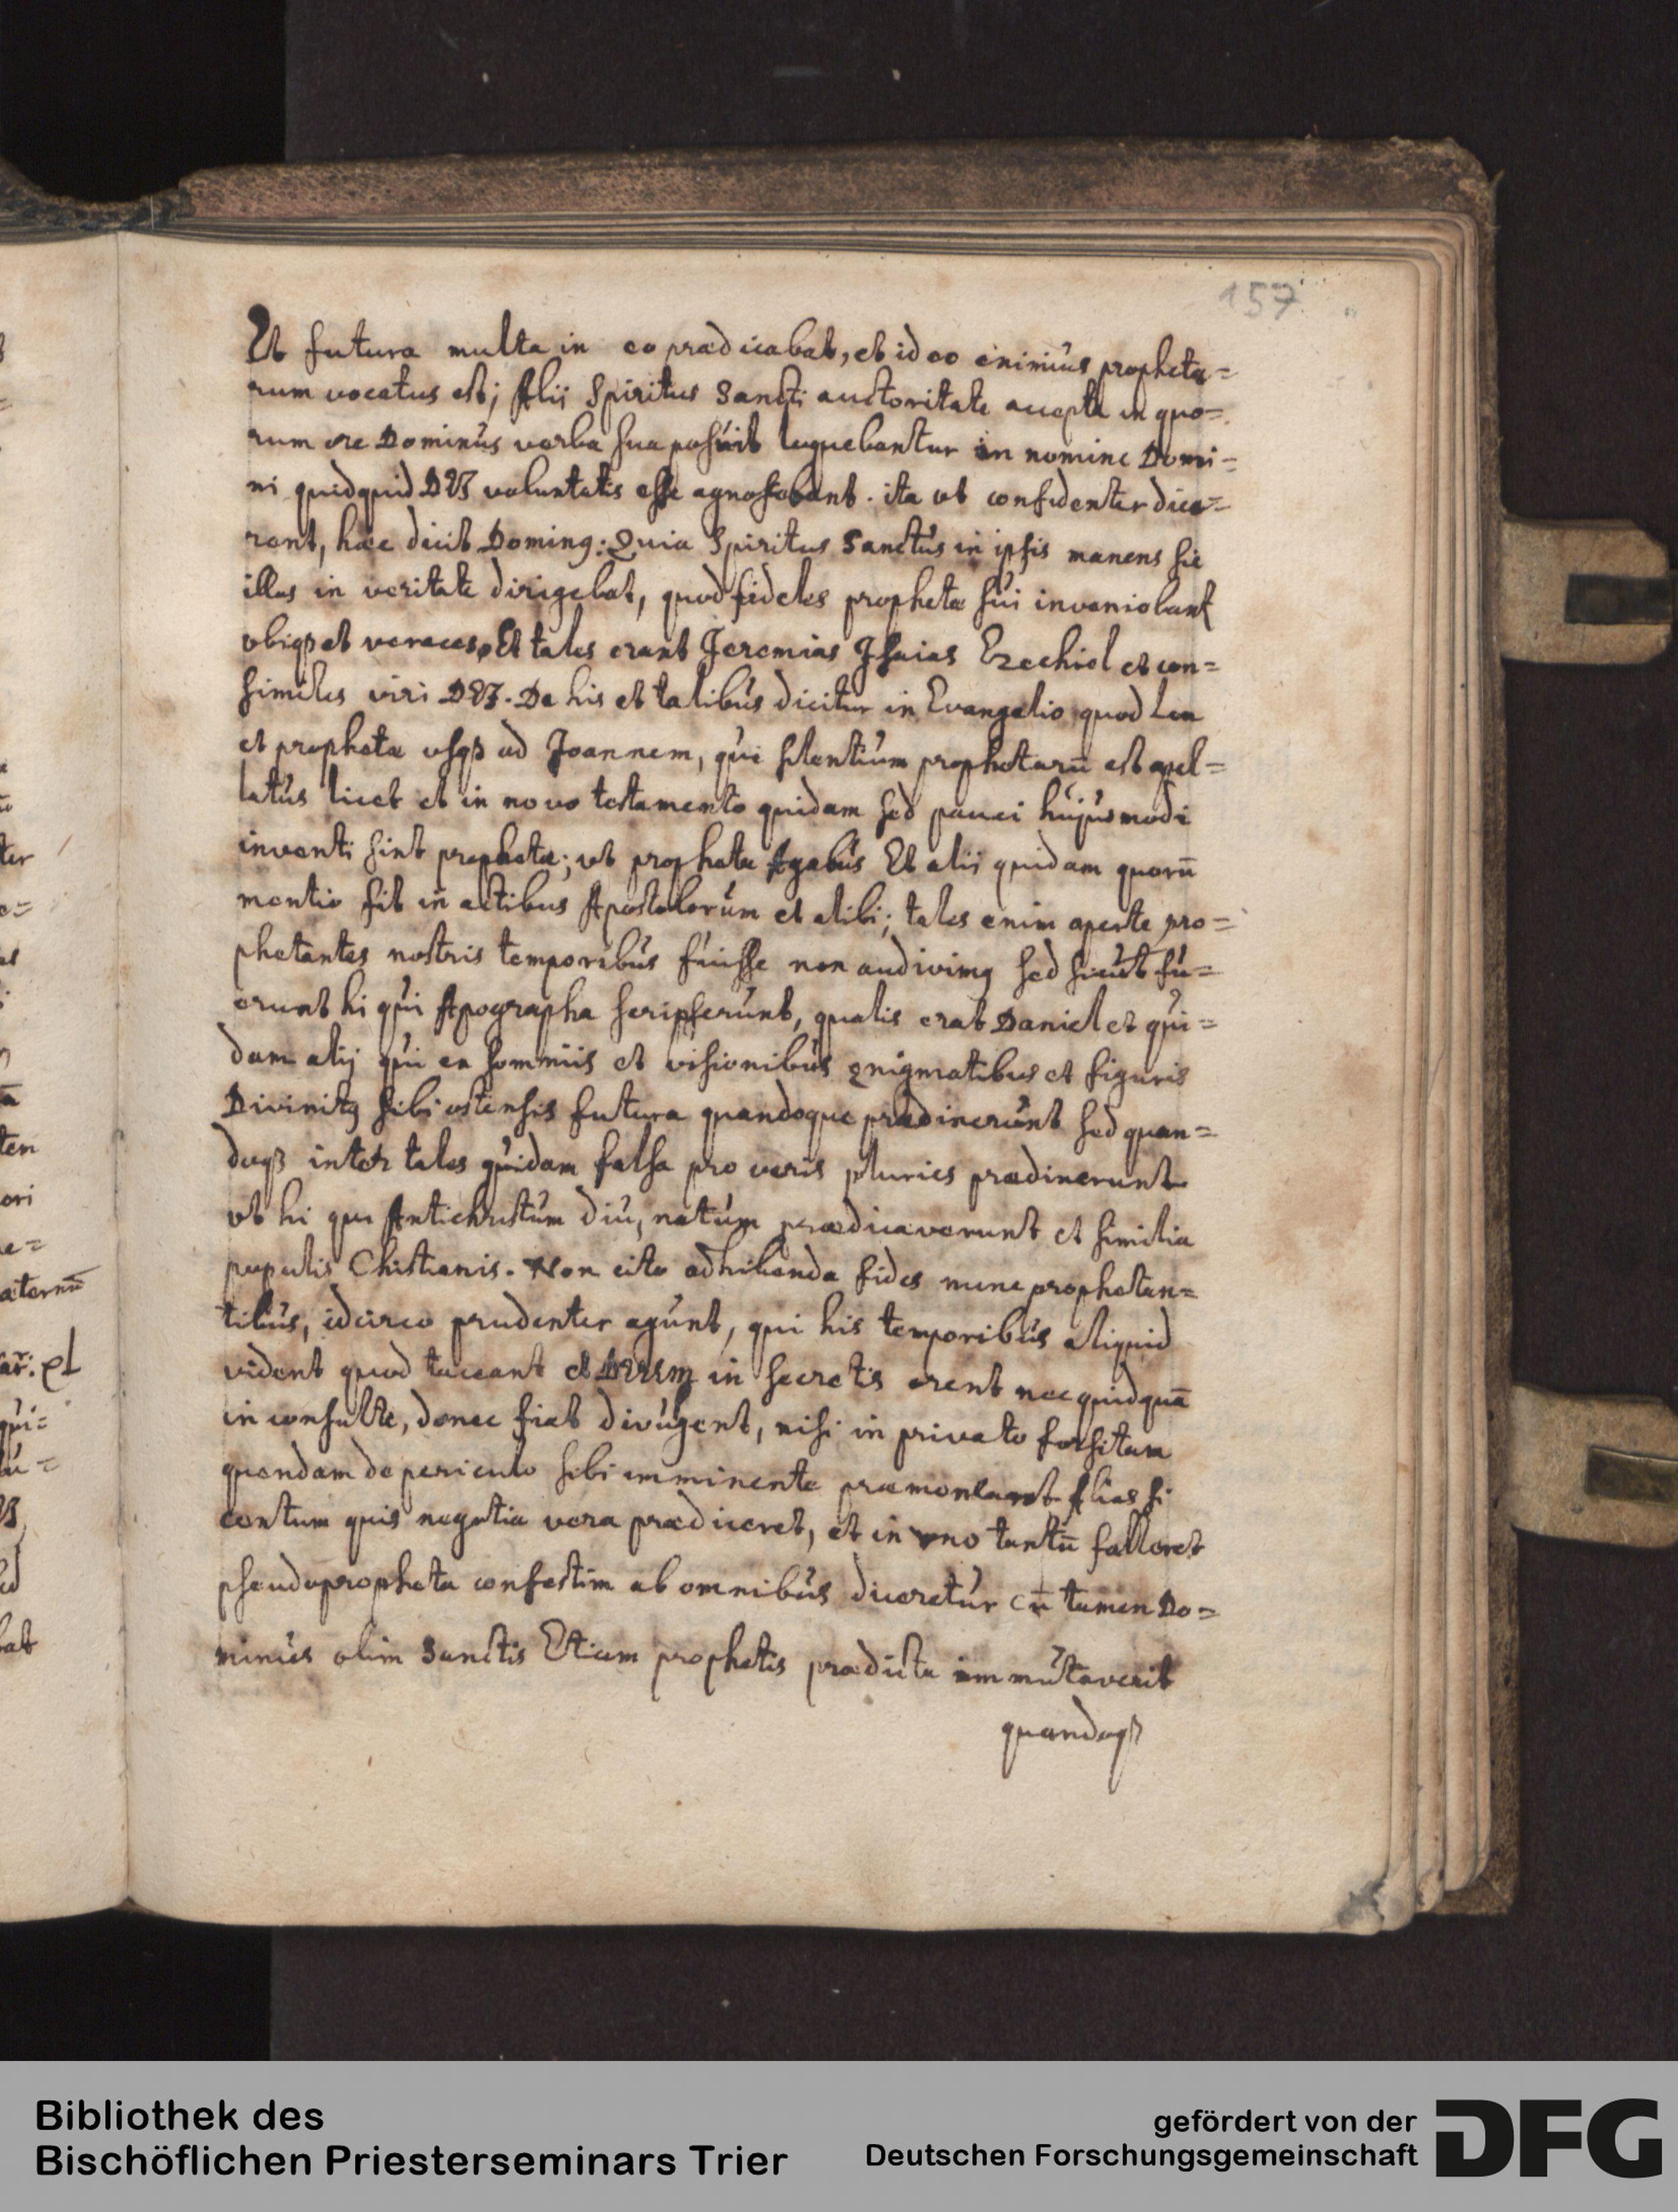 157
Et futura multa in eo praedicabat, et id eo eximius propheta=
rum vocatus est; Alii Spiritus Sancti auctoritate accepta in quo=
rum ore Dominus verba sua posuit loquebantur in nomine Domi=
ni quidquid DEI voluntatis esse agnoscebant. ita ut confidenter dice=
rent, haec dicit Dominꝰ: Quia Spiritus Sanctus in ipsis manens sic
illos in veritate dirigebat, quod fideles prophetae sui inveniebant
ubiqꝫ et veraces. Et tales erant Jeremias Isaias Ezechiel et con=
similes viri DEI. De his et talibus dicitur in Evangelio quod Lex
et prophetae usqꝫ ad Joannem, qui silentium prophetarū est apel=
latus licet et in novo testamento quidam sed pauci hujusmodi
inventi sint prophetae; ut propheta Agabus Et alii quidam quorū
mentio fit in actibus Apostolorum et alibi; tales enim aperte pro=
phetantes nostris temporibus fuisse non audivimꝰ sed sicut fu=
erunt hi qui Apographa scripserunt, qualis erat Daniel et qui=
dam alij qui ex somniis et visionibus ęnigmatibus et figuris
Divinitꝰ sibi ostensis futura quandoque praedixerunt sed quan=
doqꝫ inter tales quidam falsa pro veris pluries praedixerunt
ut hi qui Antichristum diu, natum praedicaverunt et similia
populis Chistianis. Non cito adhibenda fides nunc prophetan=
tibus, idcirco prudenter agunt, qui his temporibus aliquid
vident quod taceant et DEUM in secretis orent nec quidquā
in consulte, donec fiat divulgent, nisi in privato forsitam
quendam de periculo sibi imminente praemoneant Alias si
centum quis negotia vera praediceret, et in uno tantū falleret
pseudopropheta confestim ab omnibus diceretur cū tamen Do=
minus olim Sanctis Etiam prophetis praedicta immutaverit
quandoqꝫ
Bibliothek des
Bischöflichen Priesterseminars Trier
gefördert von der
Deutschen Forschungsgemeinschaft
DFG